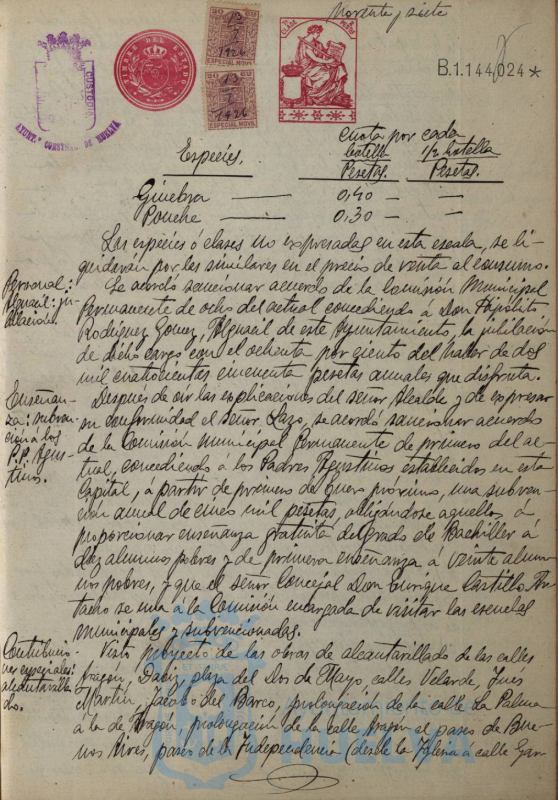 Noventa y siete
CUSTODIA
AYUNTº CONSTNAL DE HUELVA
TIMBRE DEL ESTADO
ESPECIAL MOVIL
ESPECIAL MOVIL
1926
1926
CLASE
B.1.144,024*
Especies.
Cuota por cada
botella
Pesetas.
1/2 botella
Pesetas.
Ginebra — 0,40 — —
Ponche — 0,30 — —
Las especies ó clases no expresadas en esta escala, se li-
quidarán por las similares en el precio de venta al consumo.
Personal:
Alguacil: ju-
bilación.
Se acordó sancionar acuerdo de la Comisión Municipal
Permanente de ocho del actual concediendo á Don Hipólito
Rodríguez Gómez, Alguacil de este Ayuntamiento, la jubilación
de dicho cargo con el ochenta por ciento del haber de dos
mil cuatrocientas cincuenta pesetas anuales que disfruta.
Enseñan-
za: subven-
ción á los
P.P. Agus-
tinos.
Después de oir las explicaciones del señor Alcalde y de expresar
su conformidad el señor Lazo, se acordó sancionar acuerdo
de la Comisión Municipal Permanente de primero del ac-
tual, concediendo á los Padres Agustinos establecidos en esta
Capital, á partir de primero de Enero próximo, una subven-
ción anual de cinco mil pesetas, obligándose aquellos á
proporcionar enseñanza gratuita del grado de Bachiller á
diez alumnos pobres y de primera enseñanza á veinte alum-
nos pobres, y que el señor Concejal Don Enrique Castillo
se una á la Comisión encargada de visitar las escuelas
municipales y subvencionadas.
Contribucio-
nes especiales:
alcantarilla-
do.
Visto proyecto de las obras de alcantarillado de las calles
Aragón, Daoiz, plaza del Dos de Mayo, calles Velarde, Ginés
Martín, Jacobo del Barco, prolongación de la calle la Palma
á la de Aragón, prolongación de la calle Aragón al paseo de Bue-
nos Aires, paseo de la Independencia (desde la Iglesia á calle Gar-
HUELVA